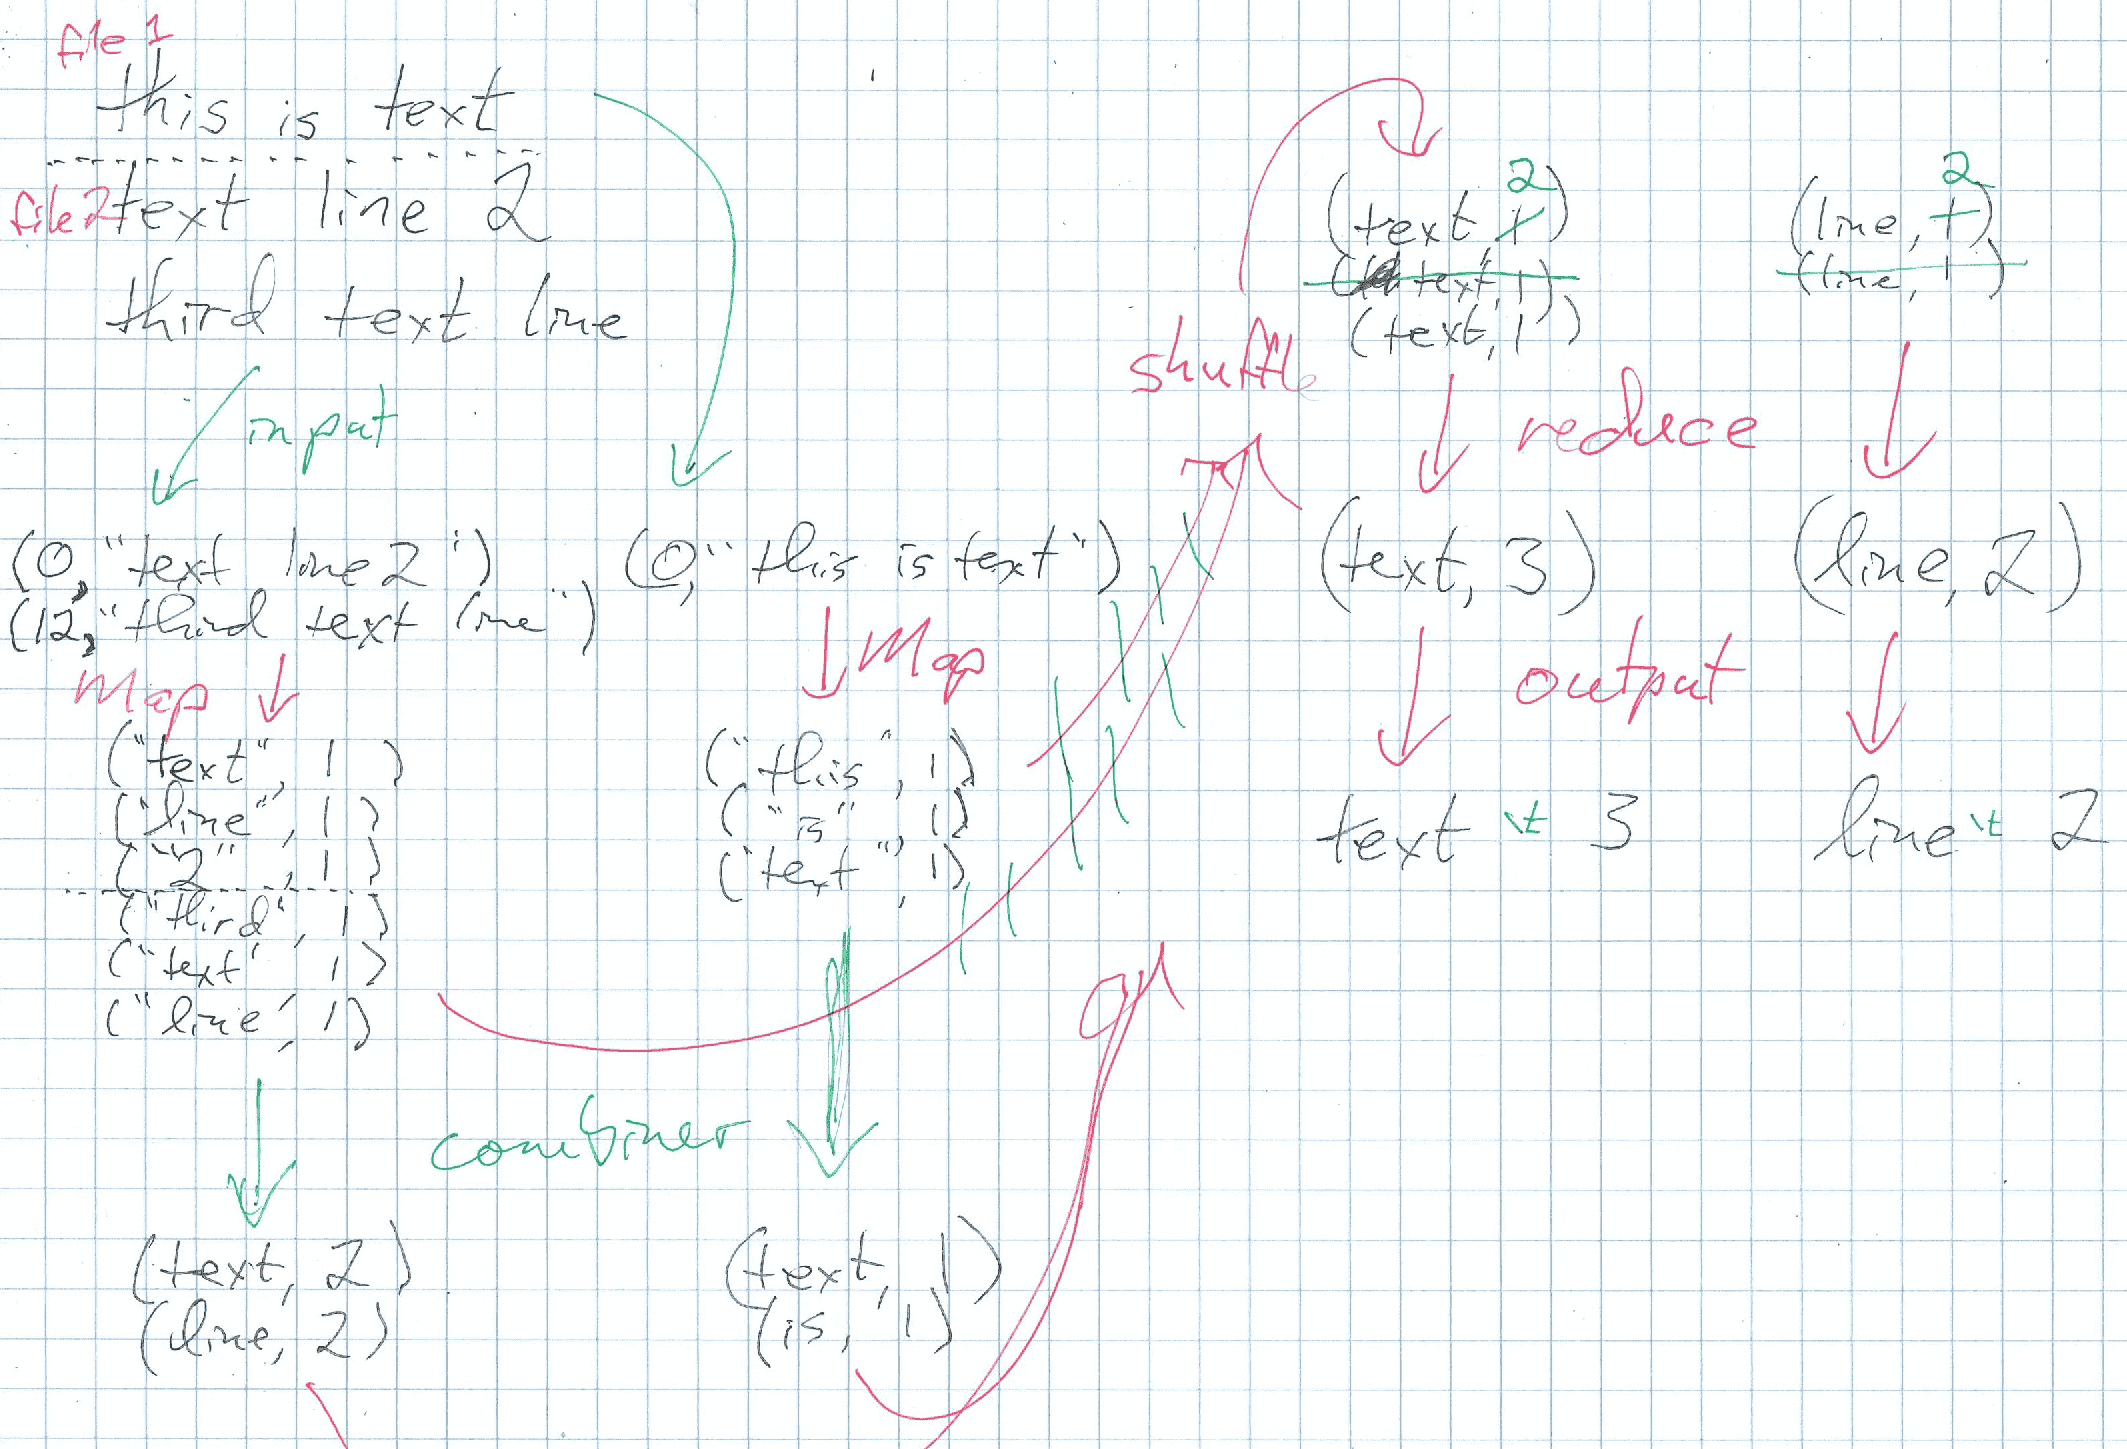 file 1
this is text
file 2 text line 2
third text line
input
(0, "text line 2")
(12, "third text line")
Map
("text", 1)
("line", 1)
("2", 1)
("third", 1)
("text", 1)
("line", 1)
(0, "this is text")
Map
("this", 1)
("is", 1)
("text", 1)
combiner
(text, 2)
(line, 2)
(text, 1)
(is, 1)
shuffle
2
(text, 1)
(text, 1)
(text, 1)
2
(line, 1)
(line, 1)
reduce
(text, 3)
(line, 2)
output
text \t 3
line \t 2